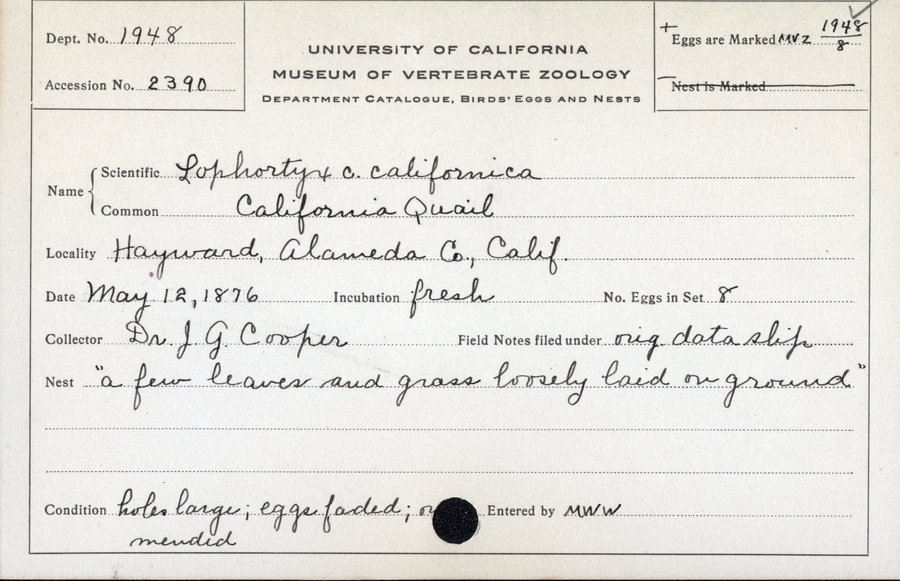 Dept. No. 1948
Accession No. 2390
UNIVERSITY OF CALIFORNIA
MUSEUM OF VERTEBRATE ZOOLOGY
DEPARTMENT CATALOGUE, BIRDS' EGGS AND NESTS
+ Eggs are Marked MVZ 1948/8
— Nest is Marked
Name { Scientific Lophortyx c. californica
Common California Quail
Locality Hayward, Alameda Co., Calif.
Date May 12, 1876 Incubation fresh No. Eggs in Set 8
Collector Dr. J. G. Cooper Field Notes filed under orig data slip
Nest "a few leaves and grass loosely laid on ground"
Condition holes large; eggs faded; Entered by MWW
mended